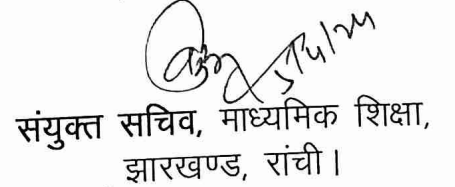 संयुक्त सचिव, माध्यमिक शिक्षा,
झारखण्ड, रांची।